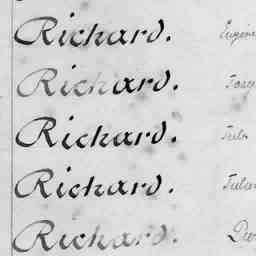 Richard. Eugène
Richard.
Richard. Jules
Richard. Julien
Richard.